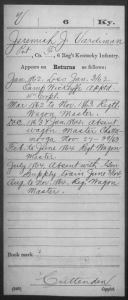 6 Ky.
Jeremiah J. Vardiman
Co. , 6 Reg't Kentucky Infantry.
Appears on
Returns as follows:
Jan. 1862 Loss Jan. 3/62
Camp Wickliffe
Mar 1862 to Nov. 1863 Regtl
Wagon Master.
Dec. 1863 & Jan 1864. Absent
Wagon Master Chatta-
nooga Nov 27 63
Feb. to June 1864 Regt Wagon
Master.
July 1864 Absent with Div
Supply train June
Aug to Nov. 1864 Reg. Wagon
Master.
Book mark:
Crittenden
(546) Copyist.